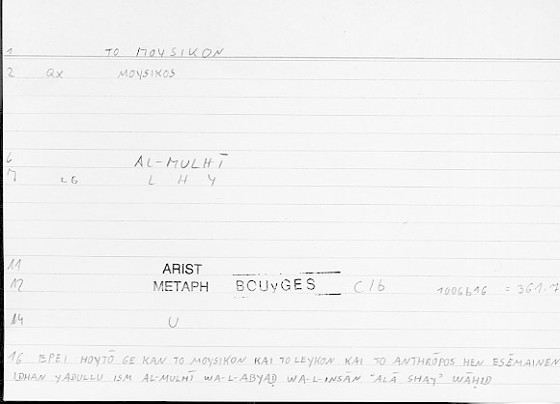 1 TO MOYSIKON
2 Qx MOYSIKOS
6 AL-MULHĪ
7 LG L H Y
11 ARIST
12 METAPH BOUyGES C/b 1006b16 = 361.7
14 U
16 EPEI HOYTŌ GE KAN TO MOYSIKON KAI TO LEYKON KAI TO ANTHRŌPOS HEN ESĒMAINEN
IDHAN YADULLU ISM AL-MULHĪ WA-L-ABYAḌ WA-L-INSĀN ʿALĀ SHAYʾ WĀḤID